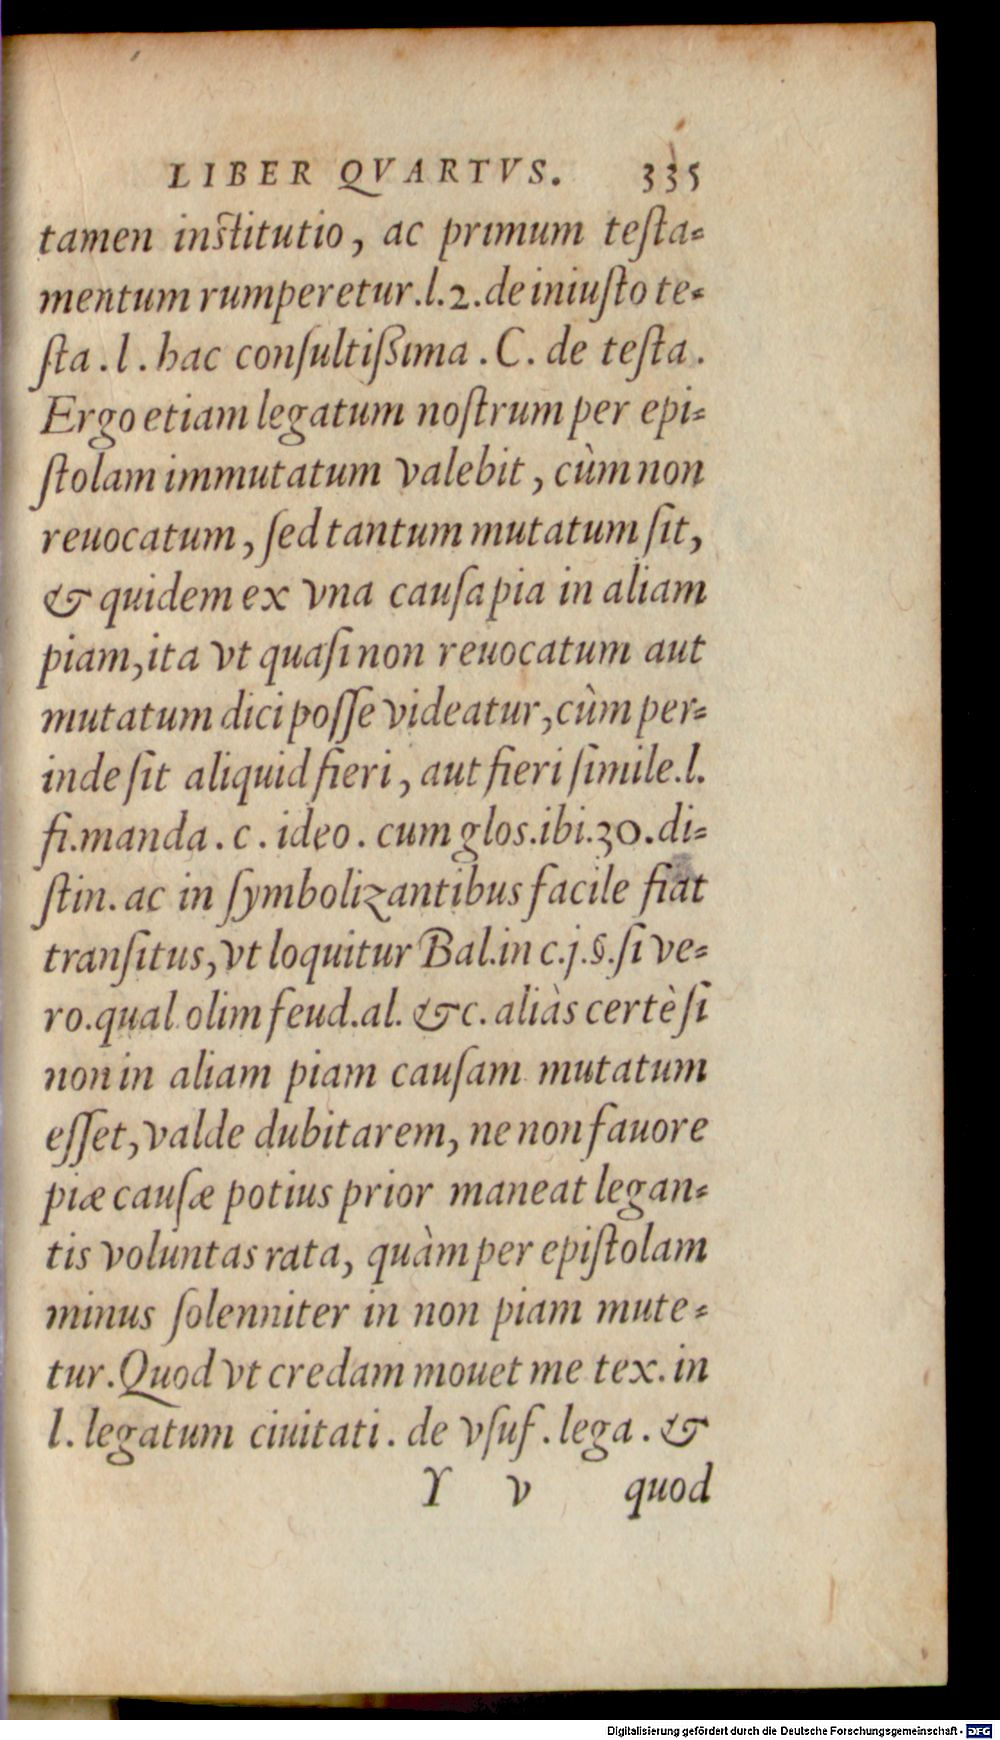 LIBER QVARTVS. 335
tamen inſtitutio, ac primum teſta-
mentum rumperetur.l.2.de iniuſto te-
ſta.l.hac conſultiſsima.C. de teſta.
Ergo etiam legatum noſtrum per epi-
ſtolam immutatum valebit, cùm non
reuocatum, ſed tantum mutatum ſit,
& quidem ex vna cauſa pia in aliam
piam, ita vt quaſi non reuocatum aut
mutatum dici poſſe videatur, cùm per-
inde ſit aliquid fieri, aut fieri ſimile.l.
fi.manda.c.ideo.cum glos.ibi.30.di-
ſtin. ac in ſymbolizantibus facile fiat
tranſitus, vt loquitur Bal.in c.j.§.ſi ve-
ro.qual.olim feud.al. &c. aliàs certè ſi
non in aliam piam cauſam mutatum
eſſet, valde dubitarem, ne non fauore
piæ cauſæ potius prior maneat legan-
tis voluntas rata, quàm per epiſtolam
minus ſolenniter in non piam mute-
tur. Quod vt credam mouet me tex. in
l. legatum ciuitati. de vſuf. lega. &
Y v quod
Digitalisierung gefördert durch die Deutsche Forschungsgemeinschaft - DFG